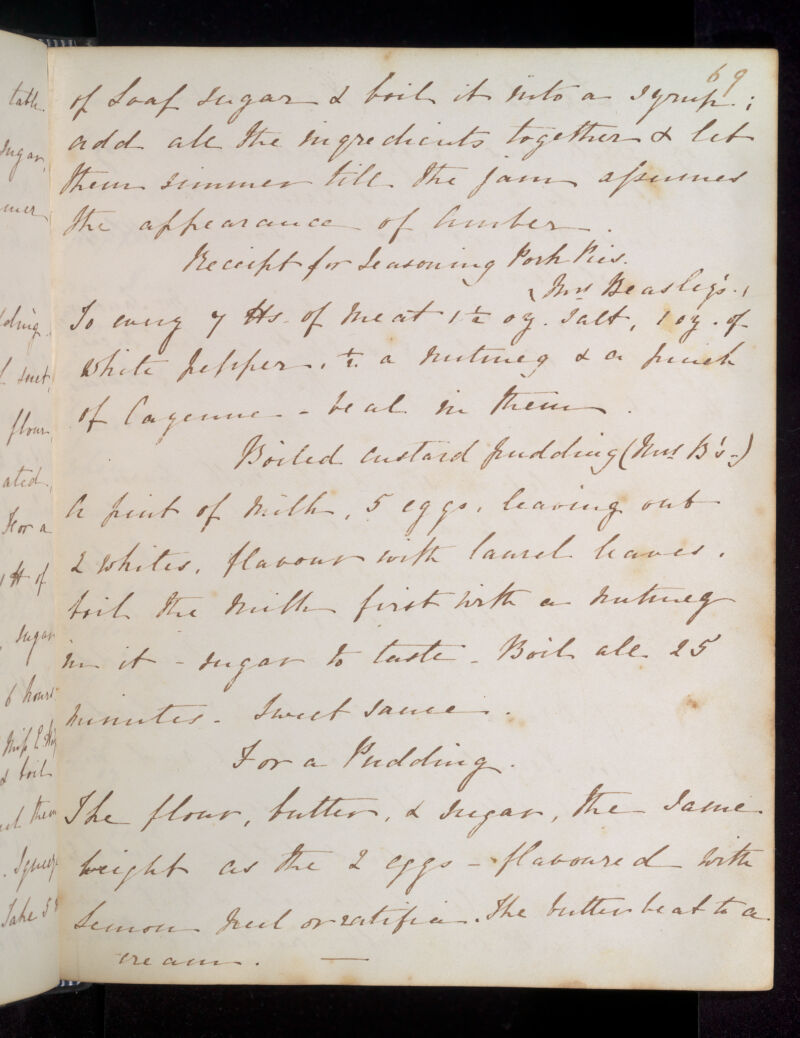 table
sugar,
mer
lding.
f suet,
flour,
ated,
For a
1 ℔ of
, sugar
6 hours
& boil
them
Take 5
69
of Loaf sugar & boil it into a syrup;
add all the ingredients together & let
them simmer till the jam assumes
the appearance of Amber.
Receipt for seasoning Pork Pies.
(Mrs Beasley's.)
To every 7 ℔s. of meat 1½ oz. salt, 1 oz. of
white pepper, ½ a nutmeg & a pinch
of Cayenne - beat in them.
Boiled custard pudding (Mrs B's-)
A pint of Milk, 5 eggs, leaving out
2 whites, flavour with laurel leaves.
boil the milk first with a nutmeg
in it - sugar to taste - Boil all 25
minutes - sweet sauce.
For a Pudding.
The flour, butter, & sugar, the same
weight as the 2 eggs - flavoured with
Lemon Peel or ratifia. The butter beat to a
cream. —